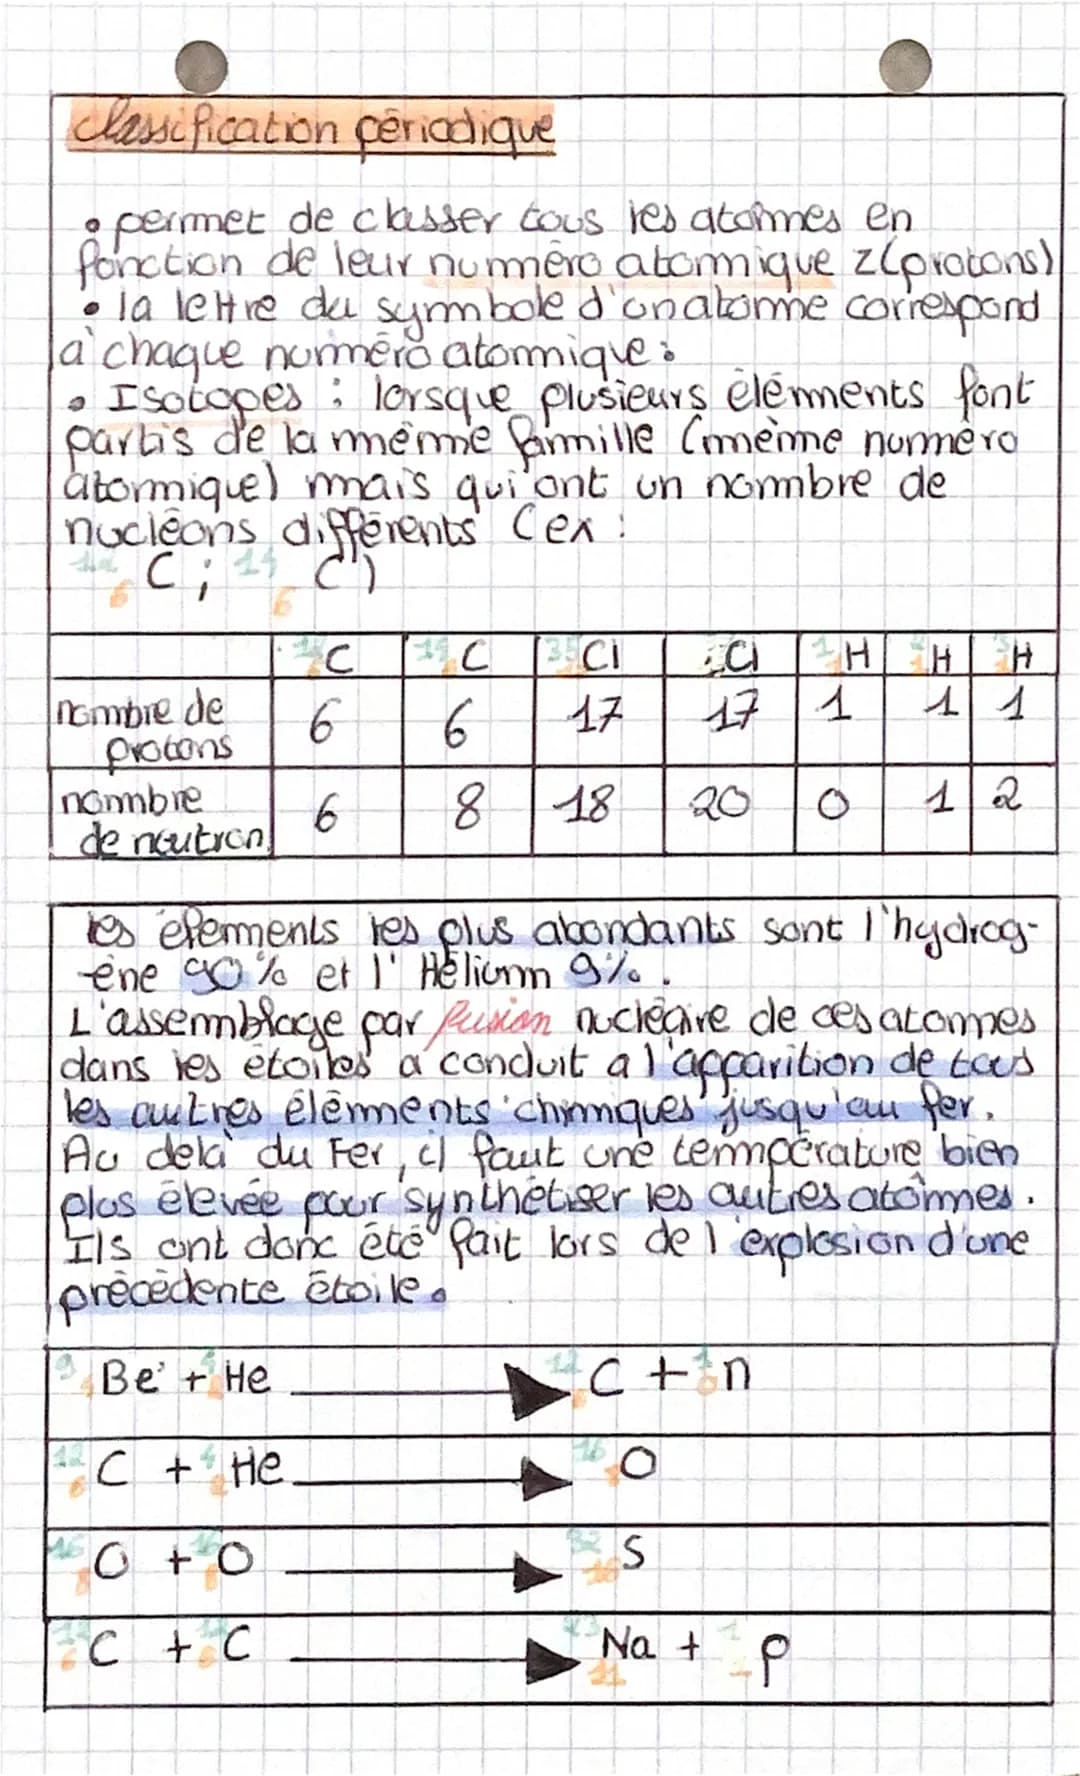 classification périodique
• permet de classer tous les atomes en
fonction de leur numéro atomique Z (protons)
• la lettre du symbole d'un atome correspond
à chaque numéro atomique :
• Isotopes : lorsque plusieurs éléments font
partis de la même famille (même numéro
atomique) mais qui ont un nombre de
nucléons différents (ex :
12 6 C ; 14 6 C)
C 14 C 35 Cl Cl 1 H H 3 H
nombre de protons 6 6 17 17 1 1 1
nombre de neutron 6 8 18 20 0 1 2
les élements les plus abondants sont l'hydrog-
ène 90% et l' Hélium 9%.
L'assemblage par fusion nucléaire de ces atomes
dans les étoiles a conduit a l'apparition de tous
les autres éléments chimiques jusqu'au fer.
Au delà du Fer, il faut une température bien
plus élevée pour synthétiser les autres atomes.
Ils ont donc été fait lors de l'explosion d'une
précédente étoile.
9 4 Be + 4 2 He → 12 6 C + 1 0 n
12 6 C + 4 2 He → 16 8 O
16 8 O + 16 8 O → 32 16 S
12 6 C + 12 6 C → 23 11 Na + 1 1 p